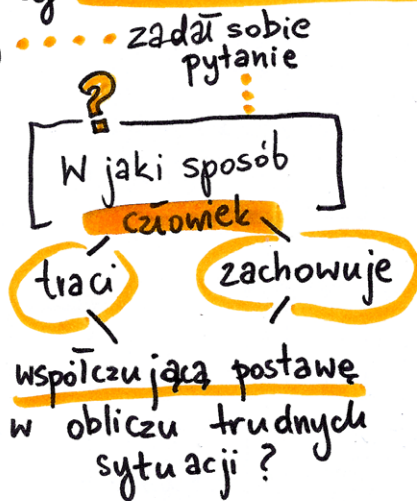 zadał sobie
pytanie
?
W jaki sposób
człowiek
traci zachowuje
współczującą postawę
w obliczu trudnych
sytuacji?